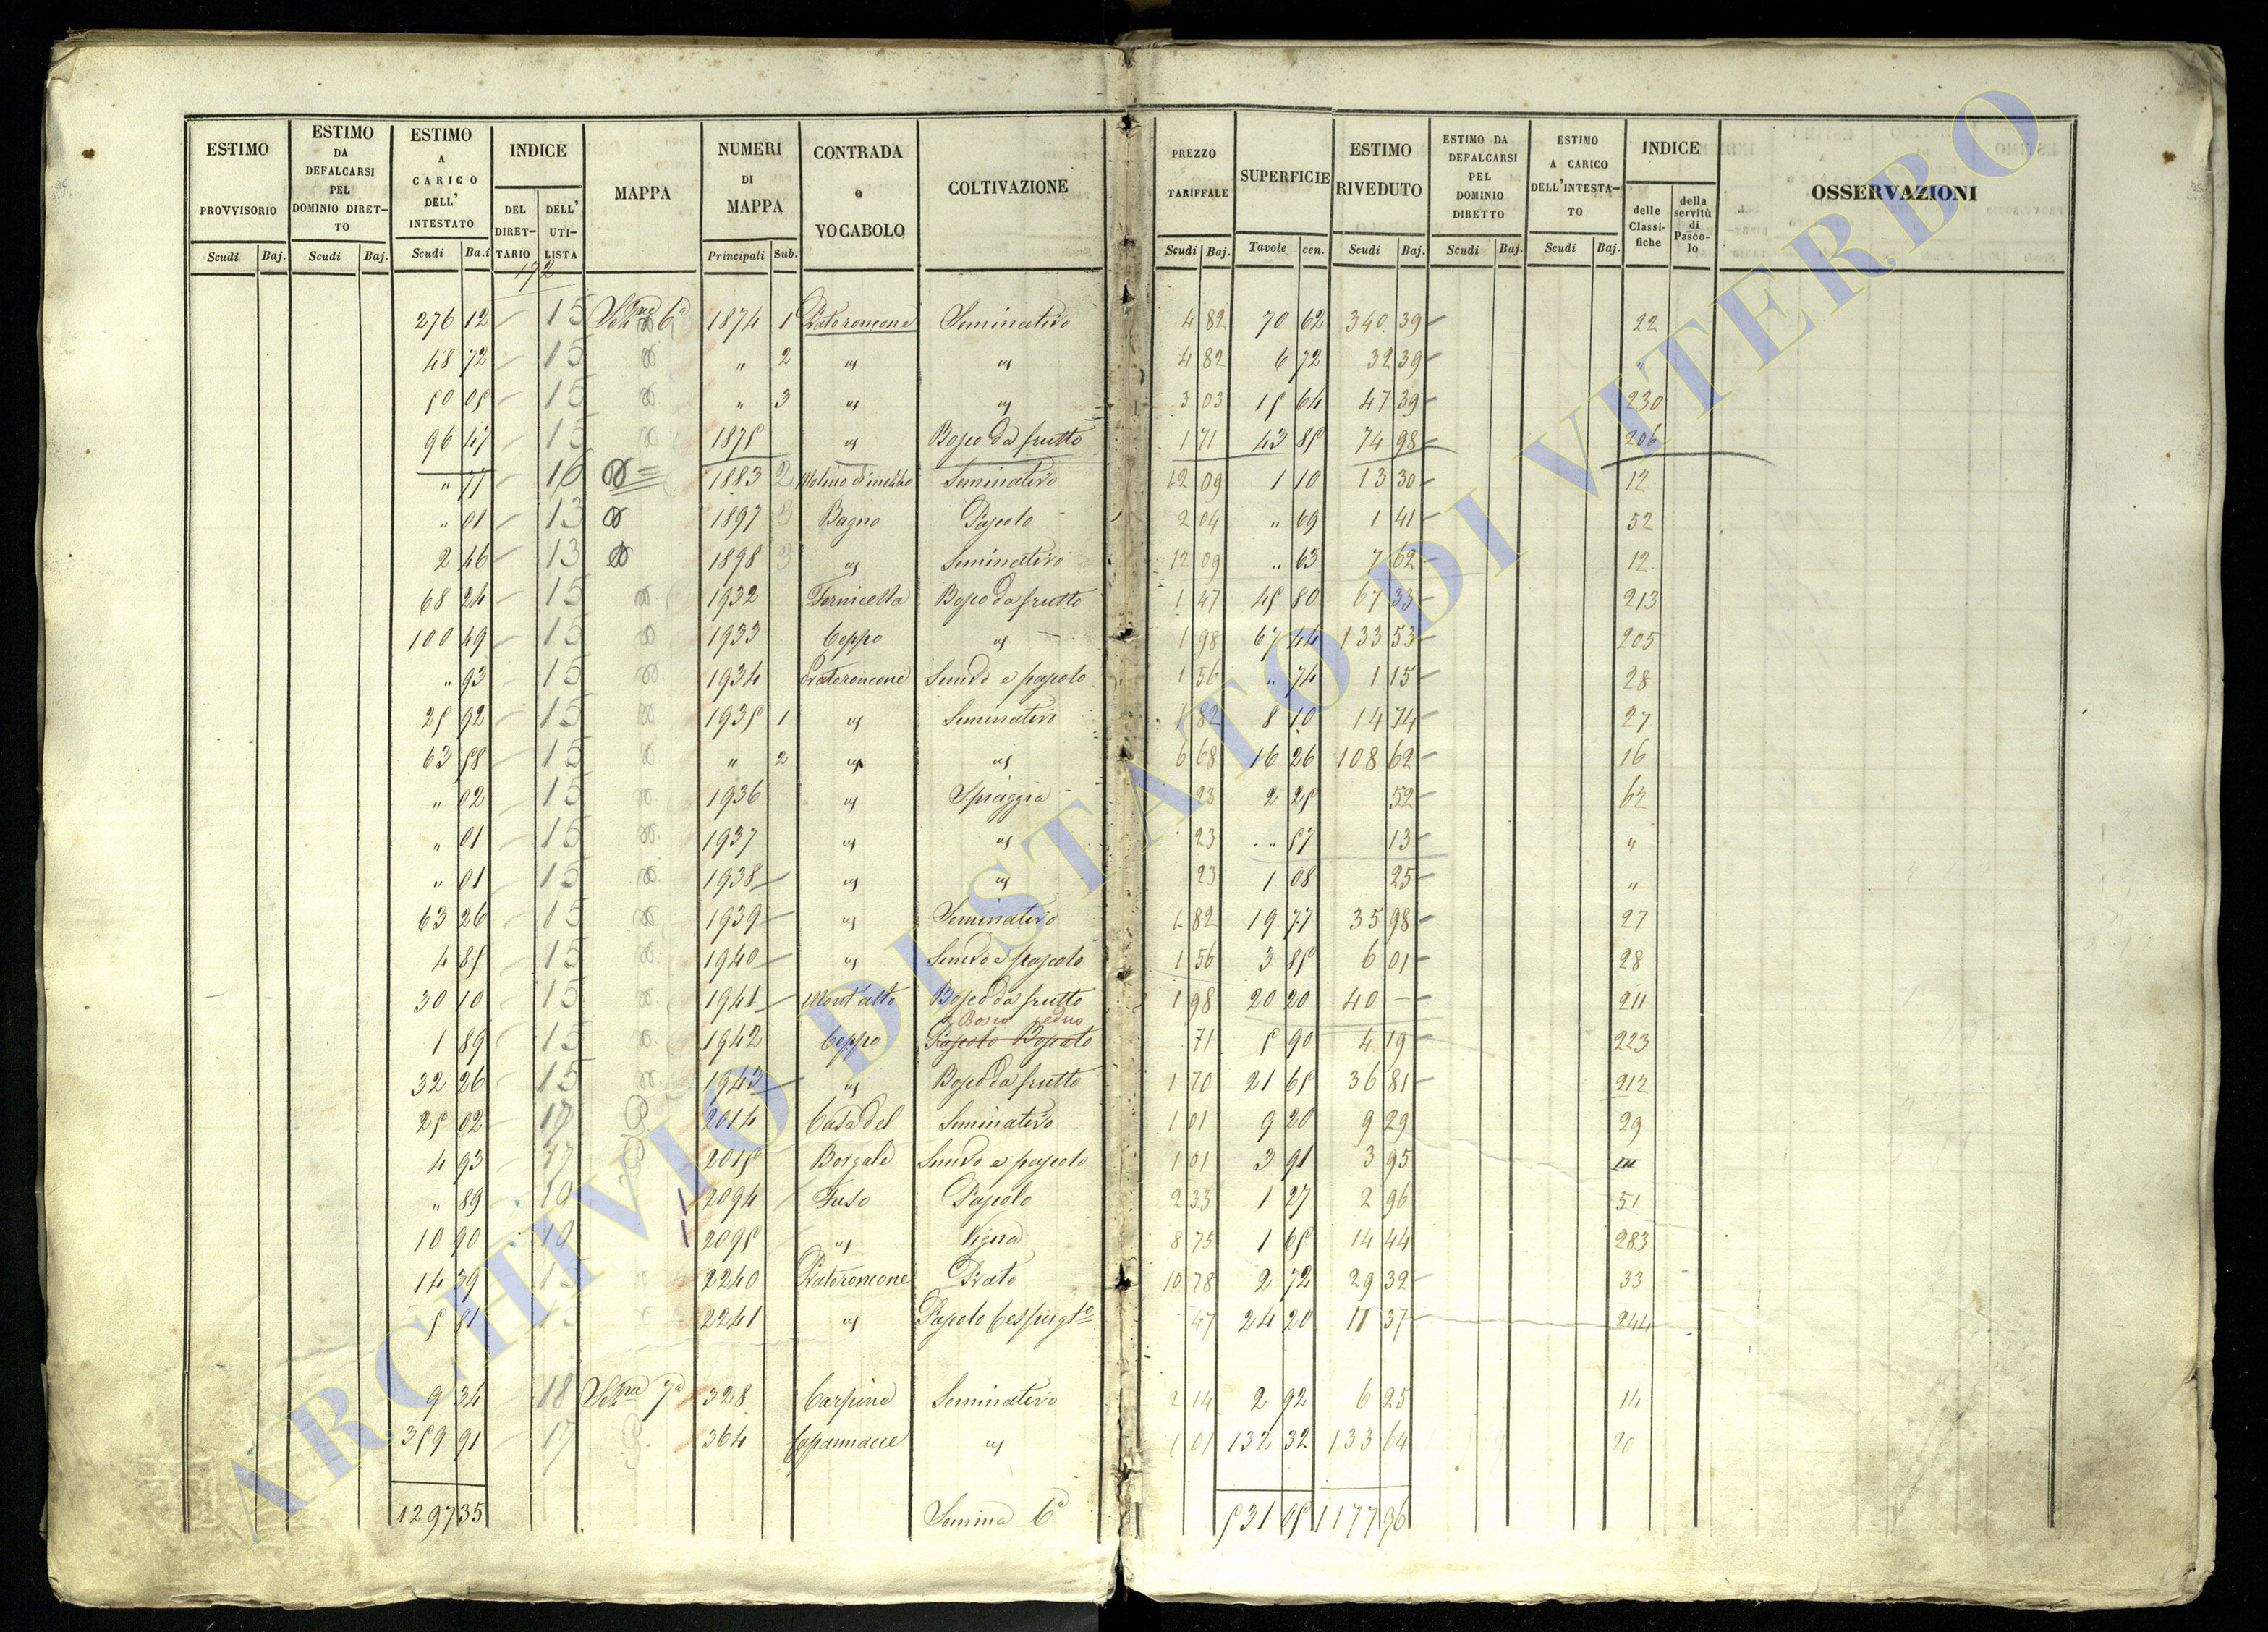 ESTIMO PROVVISORIO Scudi Baj.
ESTIMO DA DEFALCARSI PEL DOMINIO DIRETTO Scudi Baj.
ESTIMO A CARICO DELL' INTESTATO Scudi Ba.i
INDICE DEL DIRETTARIO DELL' UTILISTA
MAPPA
NUMERI DI MAPPA Principali Sub.
CONTRADA o VOCABOLO
COLTIVAZIONE
PREZZO TARIFFALE Scudi Baj.
SUPERFICIE Tavole cen.
ESTIMO RIVEDUTO Scudi Baj.
ESTIMO DA DEFALCARSI PEL DOMINIO DIRETTO Scudi Baj.
ESTIMO A CARICO DELL'INTESTATO Scudi Baj.
INDICE delle Classifiche della servitù di Pascolo
OSSERVAZIONI
172
276 12 15 6ª 1874 1 Pratoroncone Seminativo 4 82 70 62 340 39 22
48 72 15 " 2 " " 4 82 6 72 32 39 "
50 05 15 " 3 " " 3 03 15 64 47 39 230
96 47 15 1875 " Bosco da frutto 1 71 43 85 74 98 206
" 77 16 1883 2 Molino di mezzo Seminativo 12 09 1 10 13 30 12
" 01 13 1897 3 Bagno Pascolo 2 04 " 69 1 41 52
2 46 13 1898 3 " Seminativo 12 09 " 63 7 62 12
68 24 15 1932 Fornicella Bosco da frutto 1 47 45 80 67 33 213
100 49 15 1933 Ceppo " 1 98 67 44 133 53 205
" 93 15 1934 Pratoroncone Semivo e pascolo 1 56 " 74 1 15 28
25 92 15 1935 1 " Seminativo 1 82 8 10 14 74 27
63 58 15 " 2 " " 6 68 16 26 108 62 16
" 02 15 1936 " Spiaggia 23 2 25 52 62
" 01 15 1937 " " 23 " 57 13 "
" 01 15 1938 " " 23 1 08 25 "
63 26 15 1939 " Seminativo 1 82 19 77 35 98 27
4 85 15 1940 " Semivo e pascolo 1 56 3 85 6 01 28
30 10 15 1941 Mont'alto Bosco da frutto 1 98 20 20 40 - 211
Bosco ceduo
1 89 15 1942 Ceppo Pascolo Boscato 71 5 90 4 19 223
32 26 15 1943 " Bosco da frutto 1 70 21 65 36 81 212
25 02 17 2014 Casa del Seminativo 1 01 9 20 9 29 29
4 93 17 2015 Borgale Semivo e pascolo 1 01 3 91 3 95
" 89 10 2094 Fuso Pascolo 2 33 1 27 2 96 51
10 90 10 2095 " Vigna 8 75 1 65 14 44 283
14 39 15 2240 Pratoroncone Prato 10 78 2 72 29 32 33
5 81 15 2241 " Pascolo Cespugto 47 24 20 11 37 244
9 34 18 7ª 328 Carpine Seminativo 2 14 2 92 6 25 14
359 91 17 364 Capannacce " 1 01 132 32 133 64 20
1297 35 Somma 6ª 531 05 1177 96
ARCHIVIO DI STATO DI VITERBO